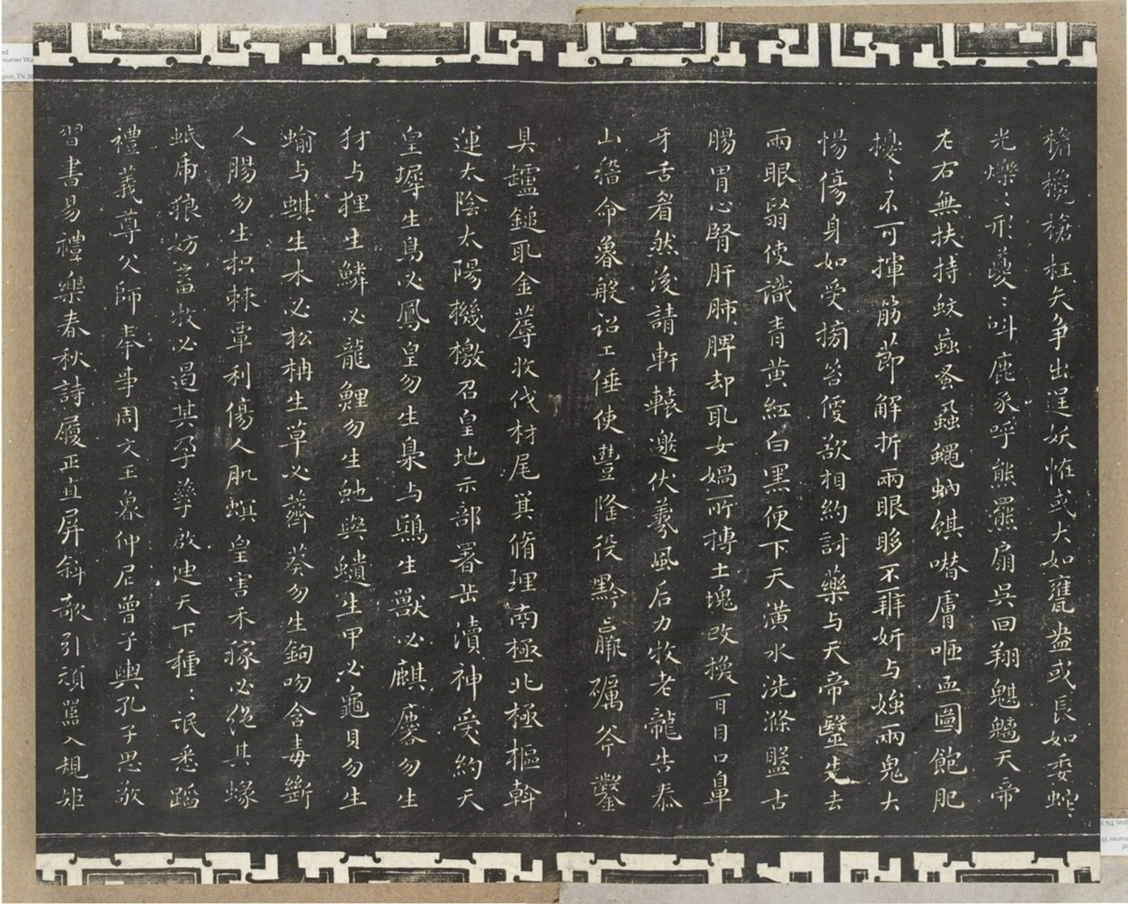 欃槍枉矢爭出逞妖怪或大如甕盎或長如委蛇
光爍〻形躨〻叫鹿豕呼熊羆扇吳回翔魁鬾天帝
左右無扶持蚊蝱蚤蝨蠅蚋蜞噆膚咂血圖飽肥
擾〻不可揮筋節解折兩眼眵不辨妍与媸兩鬼大
惕傷身如受搒笞便欲相約討藥与天帝醫先去
兩眼翳使識青黃紅白黑便下天潢水洗滌盤古
腸胃心腎肝肺脾却取女媧所摶土塊改換耳目口鼻
牙舌眉然後請軒轅邀伏羲風后力牧老龍告泰
山稽命魯般詔工倕使豐隆役黔羸礪斧鑿
具鑪鎚取金蓐收伐材尾箕脩理南極北極樞斡
運太陰太陽機檄召皇地示部署岳瀆神受約天
皇墀生鳥必鳳皇勿生梟与鴟生獸必麒麐勿生
豺与狸生鱗必龍鯉勿生虵與蟻生甲必龜貝勿生
蝓与蜞生木必松柟生草必薺葵勿生鉤吻含毒斷
人腸勿生枳棘覃利傷人肌螟蝗害禾稼必絕其蝝
蚳虎狼妨畜牧必遏其孕孳啟迪天下種〻氓悉蹈
禮義尊父師奉事周文王魯仲尼曾子輿孔子思敬
習書易禮樂春秋詩履正直屏斜敧引頑嚚入規矩